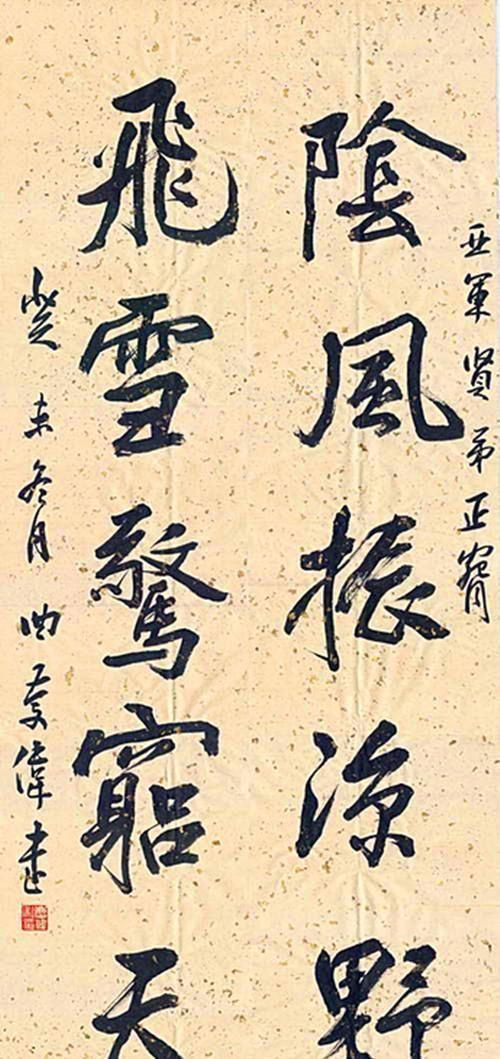 亚軍贤弟正腕
陰風振涼野
飛雪驚窮天
癸未冬月曲慶偉書